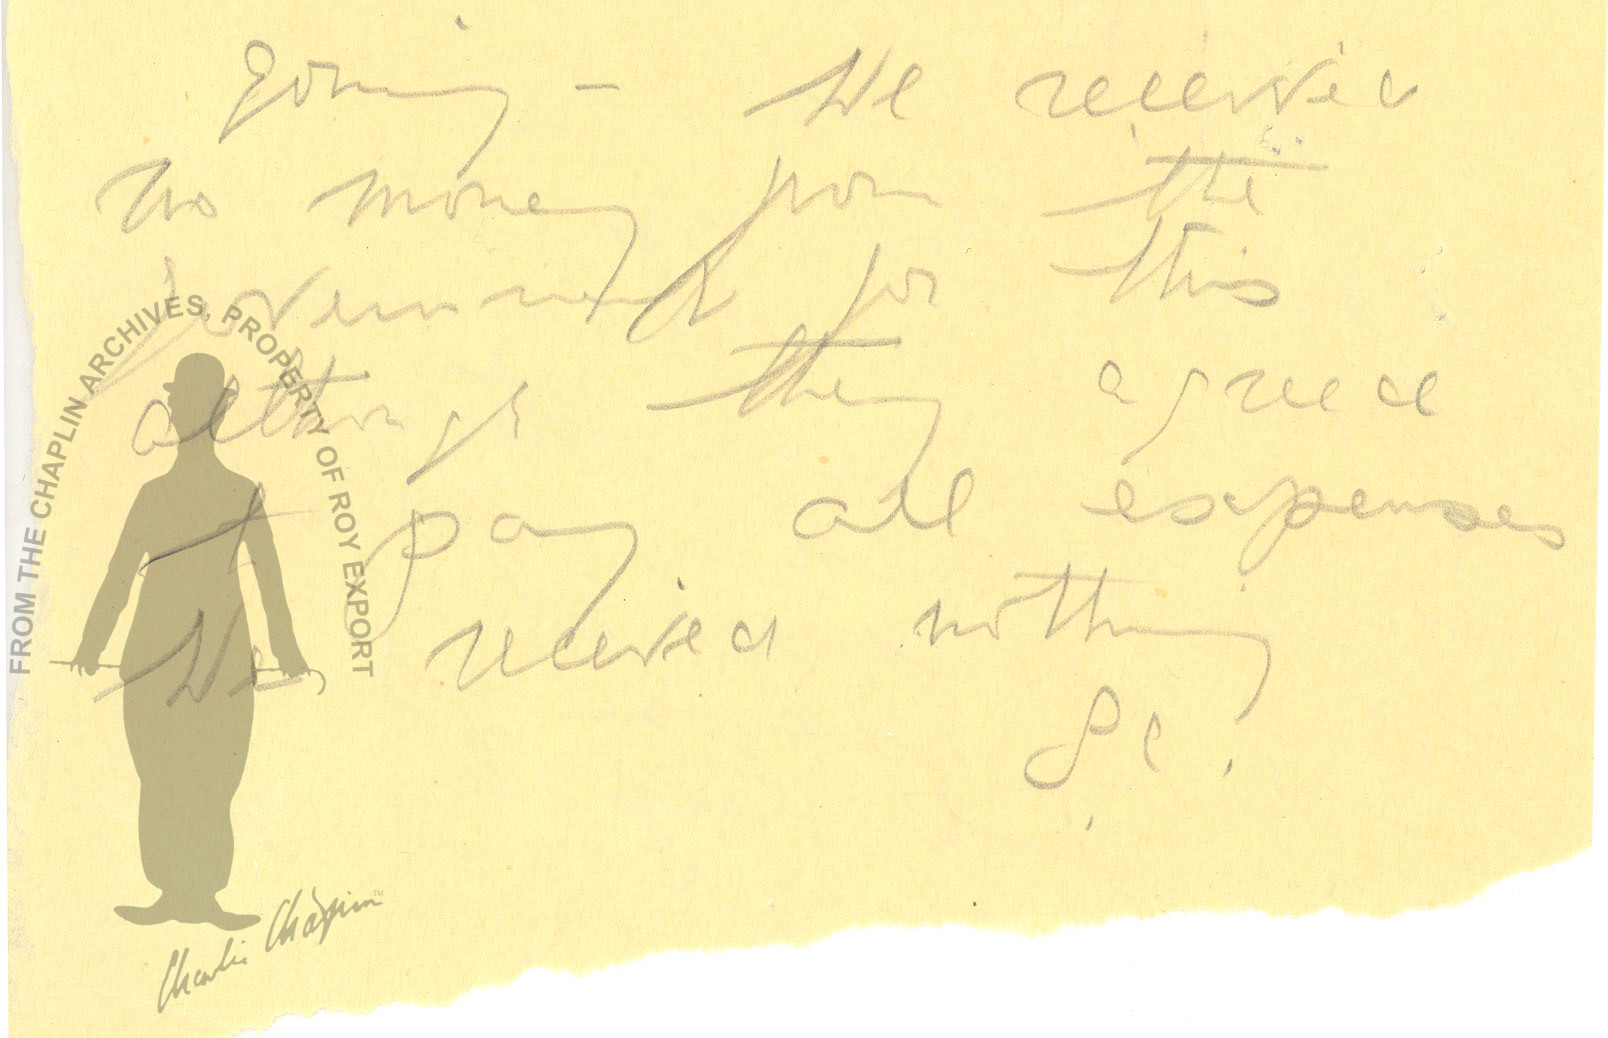 going - We received
no money from the
Government for this
although they agreed
t pay all expenses
We received nothing
Sc.
FROM THE CHAPLIN ARCHIVES, PROPERTY OF ROY EXPORT
Charlie Chaplin™